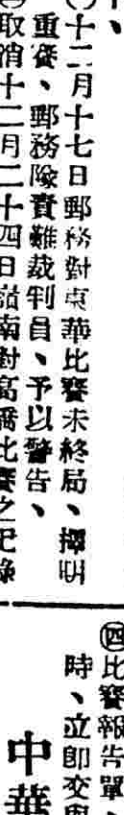 十二月十七日郵務對東華比賽未終局、擇明
重賽、郵務險責難裁判員、予以警告、
取消十二月二十四日嶺南對高橋比賽之紀錄
㊃比賽報告單、
時、立即交與
中華